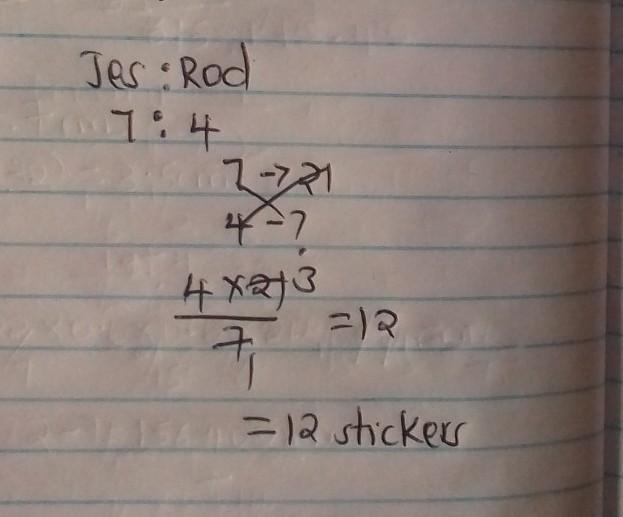 Jes : Rod
7 : 4
7 → 21
4 – ?
4 × 21 3
7 1
= 12
= 12 stickers